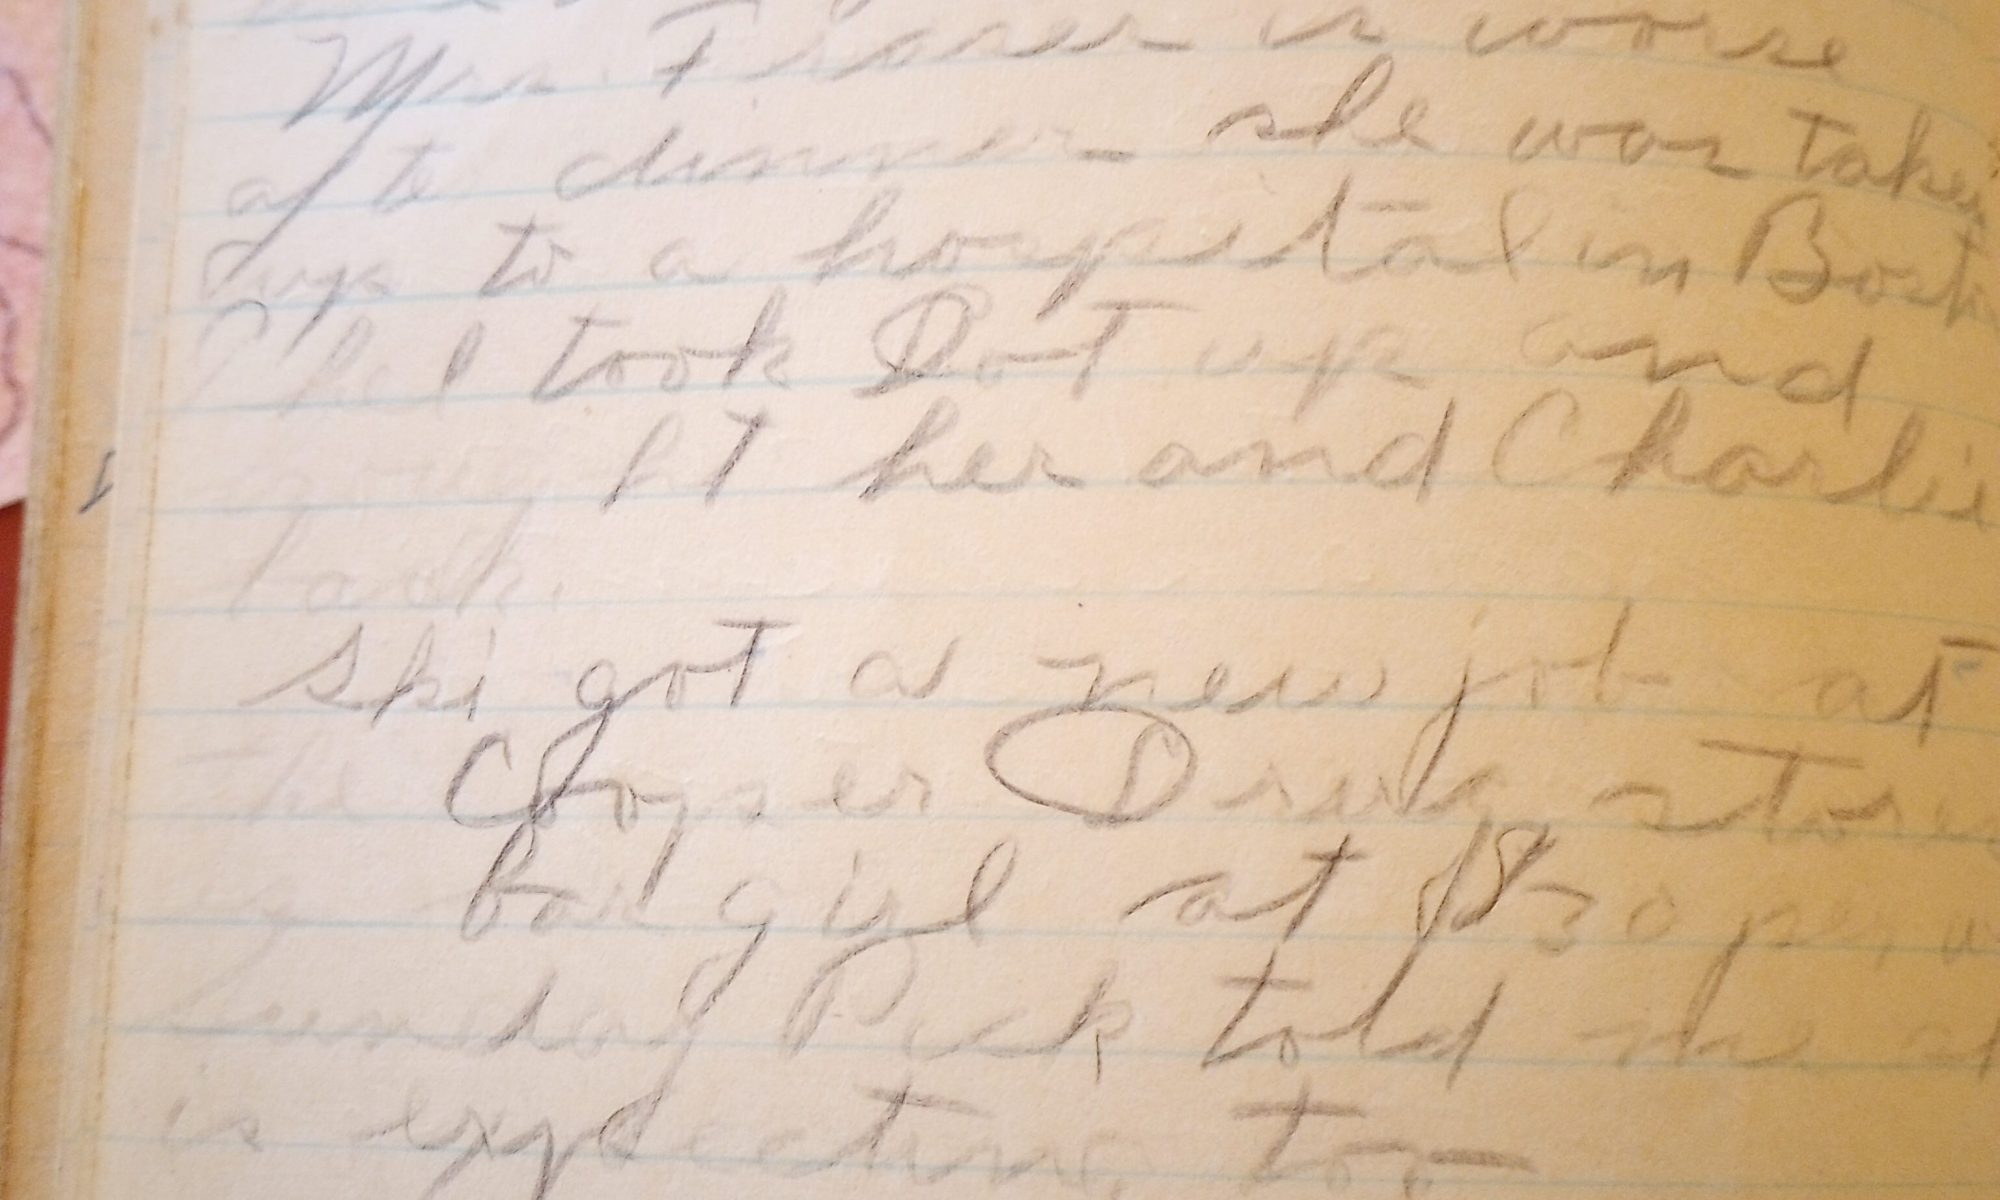 Mrs. Fraser is worse
afte dinner she was taken
up to a hospital in Boston
Phil took Dot up and
brought her and Charlie
back.
Ski got a new job at
the Cooper Drug store
as Bar girl at $30 per
Sunday Dick told me
is expecting too